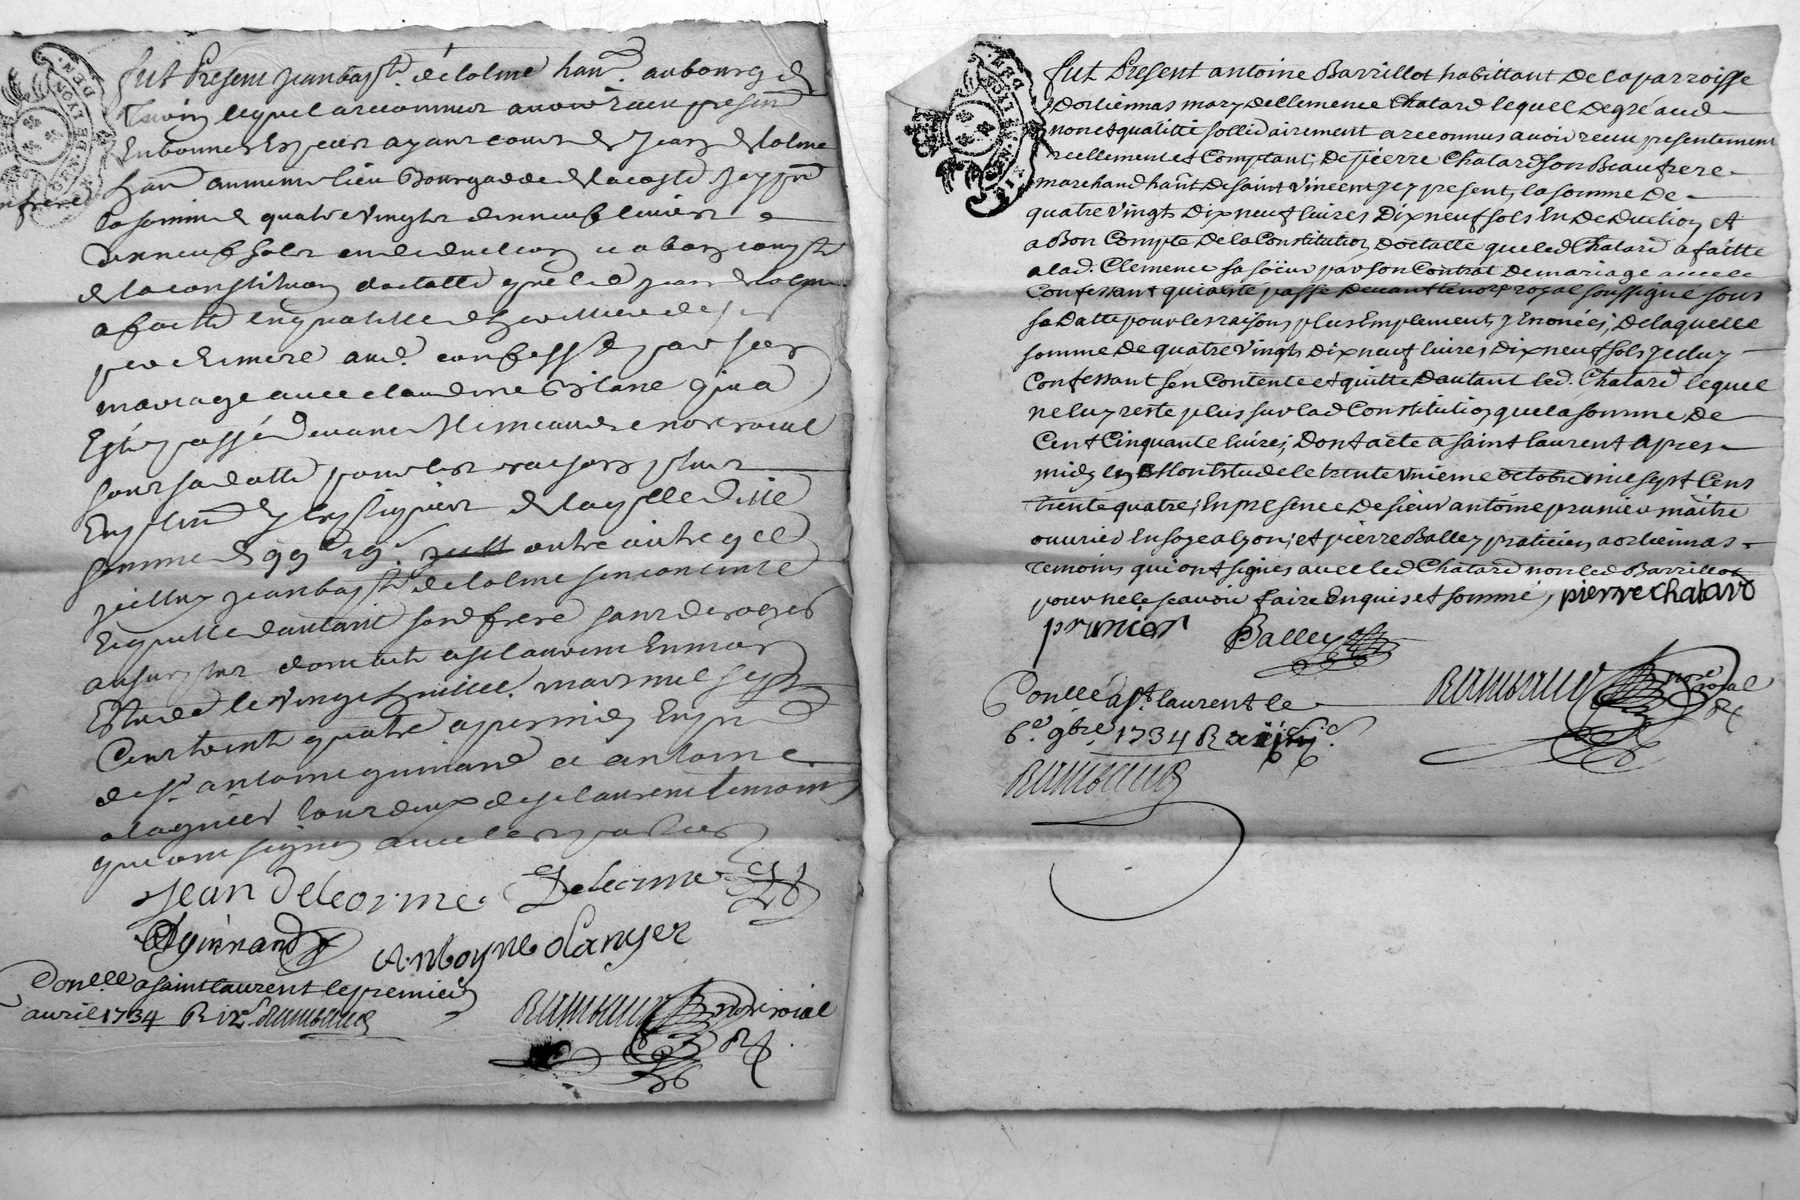 fut Present jean bapte delolme hant. au bourg de
lequel a reconnu avoir receu presentt
en bonnes especes ayant cours de jean delolme
hant au meme lieu Bourgade de la coste jcy pnt
son frere
la somme de quatre vingts dix neuf livres
dix neuf sols en deduction et a bon compte
de la constitution dotalle que led jean delolme
a faitte en qualitte de heritier de ses
pere et mere aud. confessant par son
mariage avec claudine qui a
este passé devant le notre roial
sous sa datte pour les raisons plus
de laquelle ditte
somme de 99 l 19 s
jcelluy jean bapte delolme sen contente
et quitte dautant sond frere
dont acte a st laurent en mon
estude le vingt huitie. mars mil sept
cent trente quatre apres midy en pnce
de sr antoine guinand et antoine
tous deux de st laurent temoins
qui ont signés avec les parties
jean delorme. Delorme
Aguinand Antoyne
Conllé a saint laurent le premier
avril 1734 R 12 s Rambaud
Rambaud nore roial
fut Present antoine Barrillot habittant de la parroisse
Dorliennas mary de Clemence Chatard lequel de gré aud
nom et qualitté sollidairement a reconnus avoir receu presentement
reellement et Comptant, de pierre Chatard son Beaufrere
marchand hant de saint vincent jcy present, la somme de
quatre vingts dix neuf livres dix neuf sols En Deduction et
a Bon Compte de la Constitution dotalle que led Chatard a faitte
a lad. Clemence sa sœur par son Contrat de mariage avec le
Confessant qui a esté passé devant le nore royal soussigné sous
sa datte pour les raisons plus emplement y Enoncées, de laquelle
somme de quatre vingts dix neuf livres dix neuf sols jceluy
Confessant sen Contente et quitte dautant led. Chatard lequel
ne luy reste plus sur lad Constitution que la somme de
Cent Cinquante livres, dont acte a saint laurent apres
midy en Mon Estude le trente unieme octobre mil sept Cens
trente quatre, En presence de sieur antoine prunier maitre
ouvrier En soye a lyon, et pierre Balley praticien a orliennas
temoins qui ont signés avec led Chatard non led Barrillot
pour ne le scavoir faire Enquis et sommé, pierre chatard
prunier Balley
Conllé a st. laurent le
6e. 9bre. 1734 R
Rambaud nore royal
Rambaud